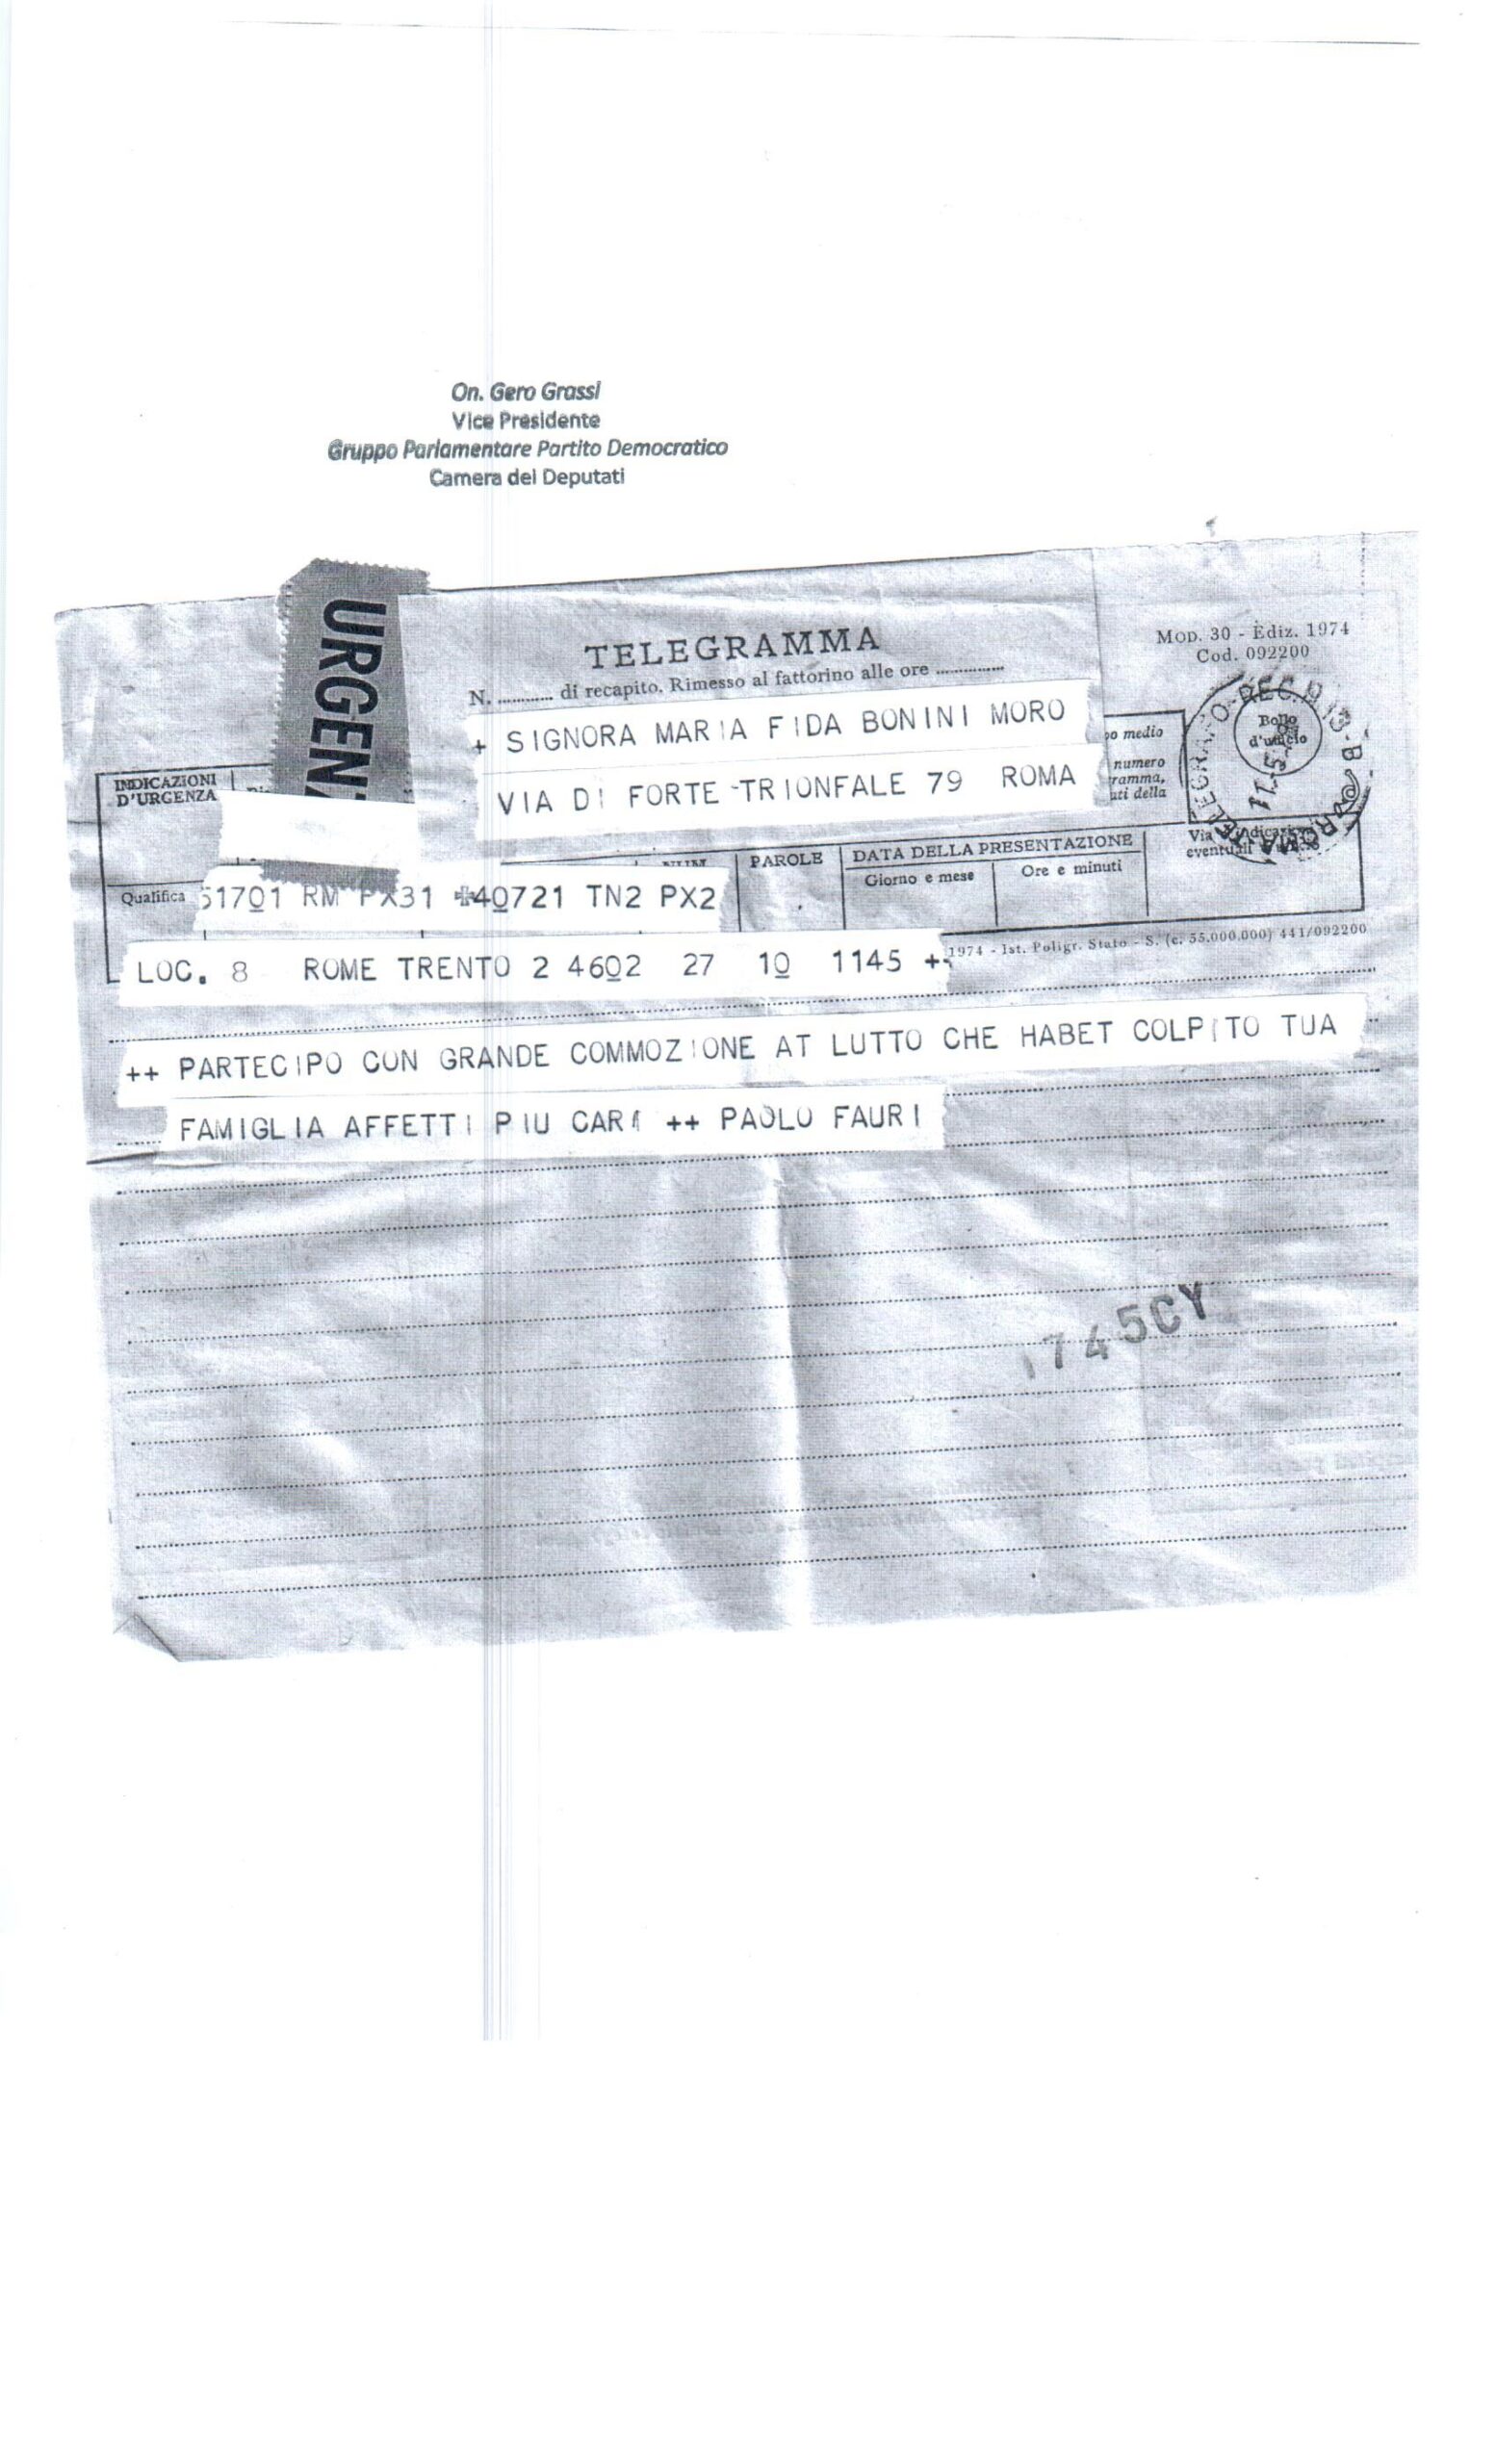 On. Gero Grassi
Vice Presidente
Gruppo Parlamentare Partito Democratico
Camera dei Deputati
URGEN
TELEGRAMMA
Mod. 30 - Ediz. 1974
Cod. 092200
N. ............ di recapito. Rimesso al fattorino alle ore ...............
+ SIGNORA MARIA FIDA BONINI MORO
VIA DI FORTE TRIONFALE 79 ROMA
medio
numero
della
Bollo
d'ufficio
INDICAZIONI
D'URGENZA
Qualifica
PAROLE
DATA DELLA PRESENTAZIONE
Giorno e mese
Ore e minuti
Via
eventuali
51701 RM PX31 40721 TN2 PX2
LOC. 8 ROME TRENTO 2 4602 27 10 1145 +
1974 - Ist. Poligr. Stato - S. (c. 35.000.000) 441/092200
++ PARTECIPO CON GRANDE COMMOZIONE AT LUTTO CHE HABET COLPITO TUA
FAMIGLIA AFFETTI PIU CARI ++ PAOLO FAURI
745CY